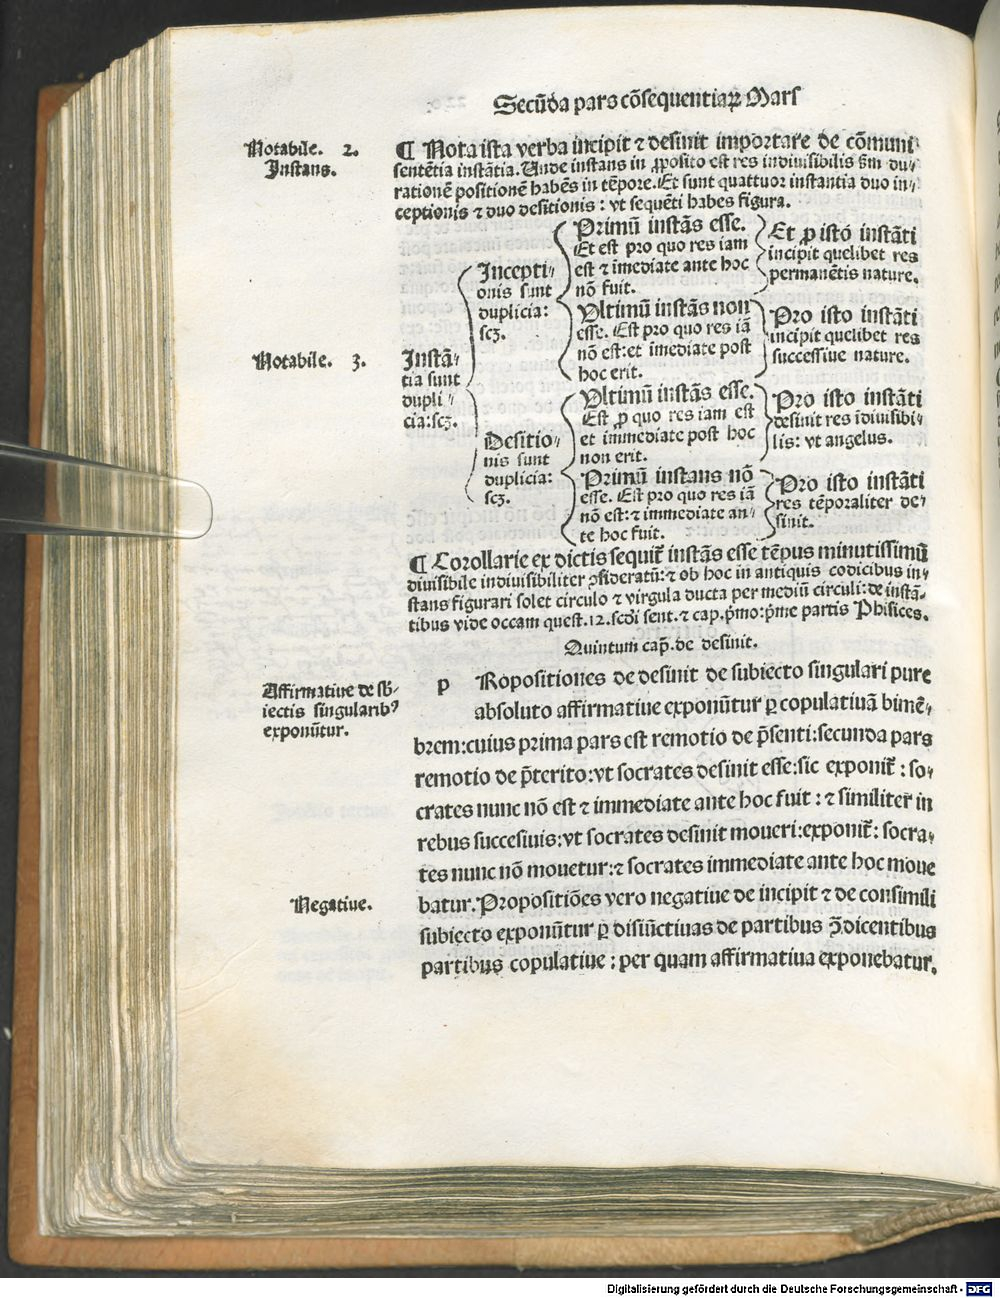 Secūda pars cōsequentiaꝝ Mars
Notabile. 2.
Instans.
¶ Nota ista verba incipit ⁊ desinit importare de cōmuni
sentētia instātia. Unde instans in ꝓposito est res indiuisibilis sm̄ du-
rationē positionē habēs in tēpore. Et sunt quattuor instantia duo in-
ceptionis ⁊ duo desitionis: vt sequēti habes figura.
Notabile. 3.
Instā-
tia sunt
dupli-
cia: scꝫ.
Incepti-
onis sunt
duplicia:
scꝫ.
Primū instās esse.
Et est pro quo res iam
est ⁊ imediate ante hoc
nō fuit.
Et ꝓ isto instāti
incipit quelibet res
permanētis nature.
Vltimū instās non
esse. Est pro quo res iā
nō est: et imediate post
hoc erit.
Pro isto instāti
incipit quelibet res
successiue nature.
Desitio-
nis sunt
duplicia:
scꝫ.
Vltimū instās esse.
Est ꝓ quo res iam est
et immediate post hoc
non erit.
Pro isto instāti
desinit res īdiuisibi-
lis: vt angelus.
Primū instans nō
esse. Est pro quo res iā
nō est: ⁊ immediate an-
te hoc fuit.
Pro isto instāti
res tēporaliter de-
sinit.
¶ Corollarie ex dictis sequit̄ instās esse tēpus minutissimū
diuisibile indiuisibiliter ꝯsideratū: ⁊ ob hoc in antiquis codicibus in-
stans figurari solet circulo ⁊ virgula ducta per mediū circuli: de instā-
tibus vide occam quest. 12. scđi sent. ⁊ cap. p̄mo: p̄me partis Phisices.
Quintum cap̄. de desinit.
Affirmatiue de sb-
iectis singularibꝰ
exponūtur.
p Ropositiones de desinit de subiecto singulari pure
absoluto affirmatiue exponūtur ꝑ copulatiuā bimē-
brem: cuius prima pars est remotio de p̄senti: secunda pars
remotio de p̄terito: vt socrates desinit esse: sic exponit̄: so-
crates nunc nō est ⁊ immediate ante hoc fuit: ⁊ similiter in
rebus succesiuis: vt socrates desinit moueri: exponit̄: socra-
tes nunc nō mouetur: ⁊ socrates immediate ante hoc moue
Negatiue.
batur. Propositiōes vero negatiue de incipit ⁊ de consimili
subiecto exponūtur ꝑ disiūctiuas de partibus ꝯ̄dicentibus
partibus copulatiue: per quam affirmatiua exponebatur.
Digitalisierung gefördert durch die Deutsche Forschungsgemeinschaft - DFG